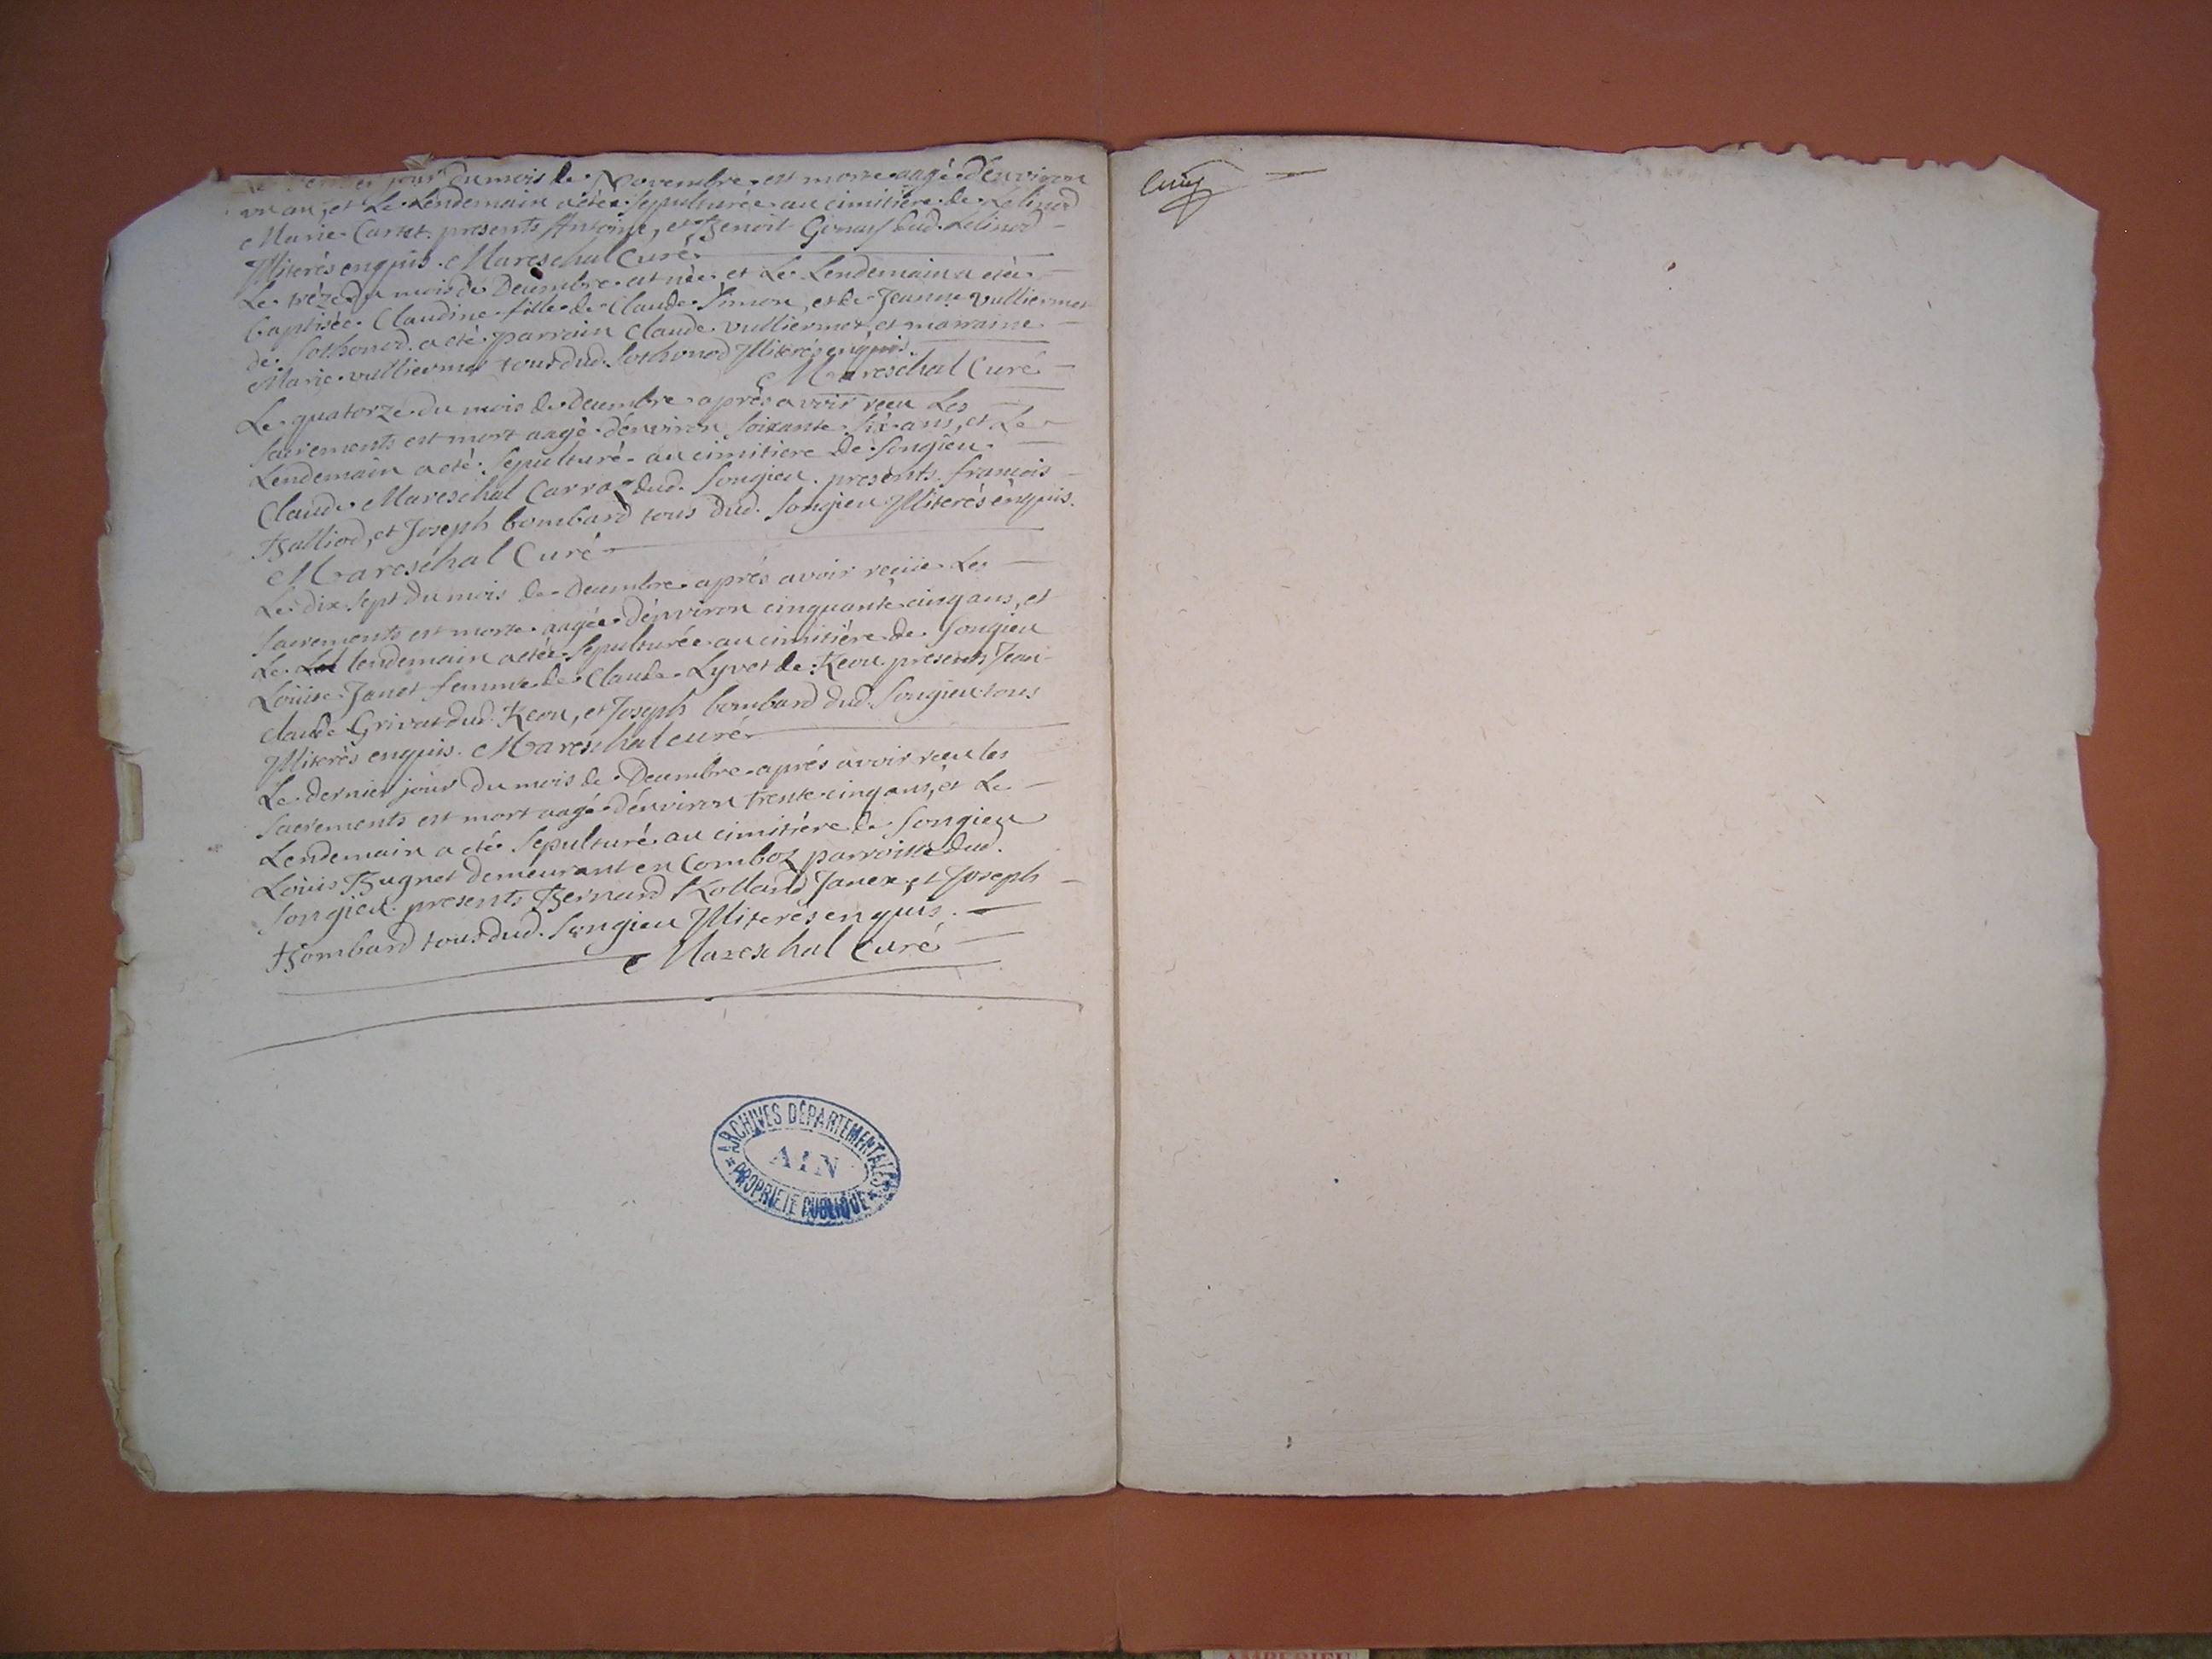 Le dernier jour du mois de Novembre est morte aagée d'environ
un an, et Le Lendemain a étée sepulturée au cimitiére de Lilinod
Marie Cartet. presents Antoine, et Benoit Gonas dud. Lilinod
Illiterés enquis. Mareschal Curé
Le tréze du mois de Decembre est née et Le Lendemain a étée
baptisée Claudine fille de Claude Simon, et de Jeanne vulliermet
de Sothonod. a eté parrain Claude vulliermet, et marraine
Marie vulliermet tous dud. Sothonod Illiterés enquis.
Mareschal Curé
Le quatorze du mois de decembre aprés avoir receu Les
sacrements est mort aagé d'environ soixante six ans, et Le
Lendemain a eté sepulturé au cimitiere de Songieu
Claude Mareschal Carraz dud. Songieu. presents francois
Balliod, et Joseph bombard tous dud. Songieu Illiterés enquis.
Mareschal Curé
Le dix sept du mois de Decembre aprés avoir receüe Les
sacrements est morte aagée d'environ cinquante cinq ans, et
Le lendemain a étée sepulturée au cimitiére de Songieu
Loüise Janet femme de Claude Lyvet de Reou presents Jean
claude Grivat dud. Reou, et Joseph bombard dud. Songieu tous
Illiterés enquis. Mareschal curé
Le dernier jour du mois de Decembre aprés avoir receu les
sacrements est mort aagé d'environ trente cinq ans, et Le
Lendemain a eté sepulturé au cimitiére de Songieu
Loüis Bugnet demeurant en Comboz parroisse dud.
Songieu. presents Bernard Rolland Janex, et Joseph
Bombard tous dud. Songieu Illiterés enquis.
Mareschal Curé
ARCHIVES DÉPARTEMENTALES
AIN
PROPRIETE PUBLIQUE